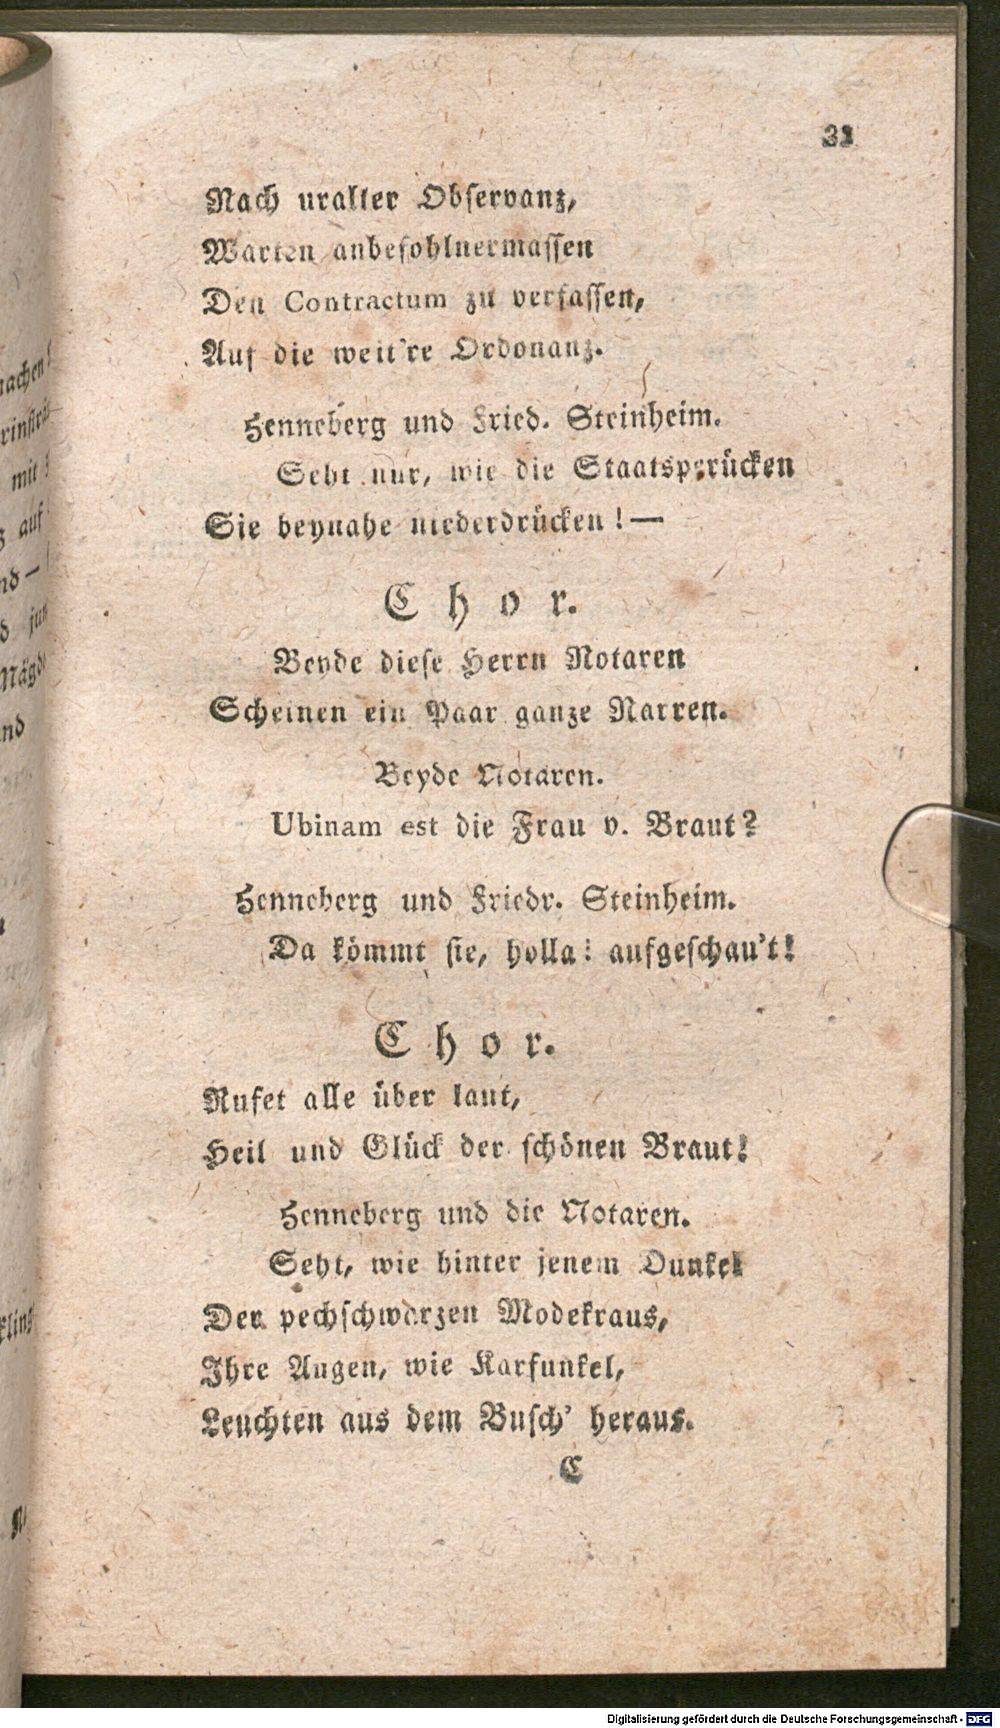 31
Nach uralter Observanz,
Warten anbefohlnermassen
Den Contractum zu verfassen,
Auf die weit're Ordonanz.
Henneberg und Fried. Steinheim.
Seht nur, wie die Staatsperücken
Sie beynahe niederdrücken! —
Chor.
Beyde diese Herrn Notaren
Scheinen ein Paar ganze Narren.
Beyde Notaren.
Ubinam est die Frau v. Braut?
Henneberg und Friedr. Steinheim.
Da kömmt sie, holla! aufgeschau't!
Chor.
Rufet alle über laut,
Heil und Glück der schönen Braut!
Henneberg und die Notaren.
Seht, wie hinter jenem Dunkel
Der pechschwarzen Modekraus,
Ihre Augen, wie Karfunkel,
Leuchten aus dem Busch' heraus.
C
Digitalisierung gefördert durch die Deutsche Forschungsgemeinschaft - DFG